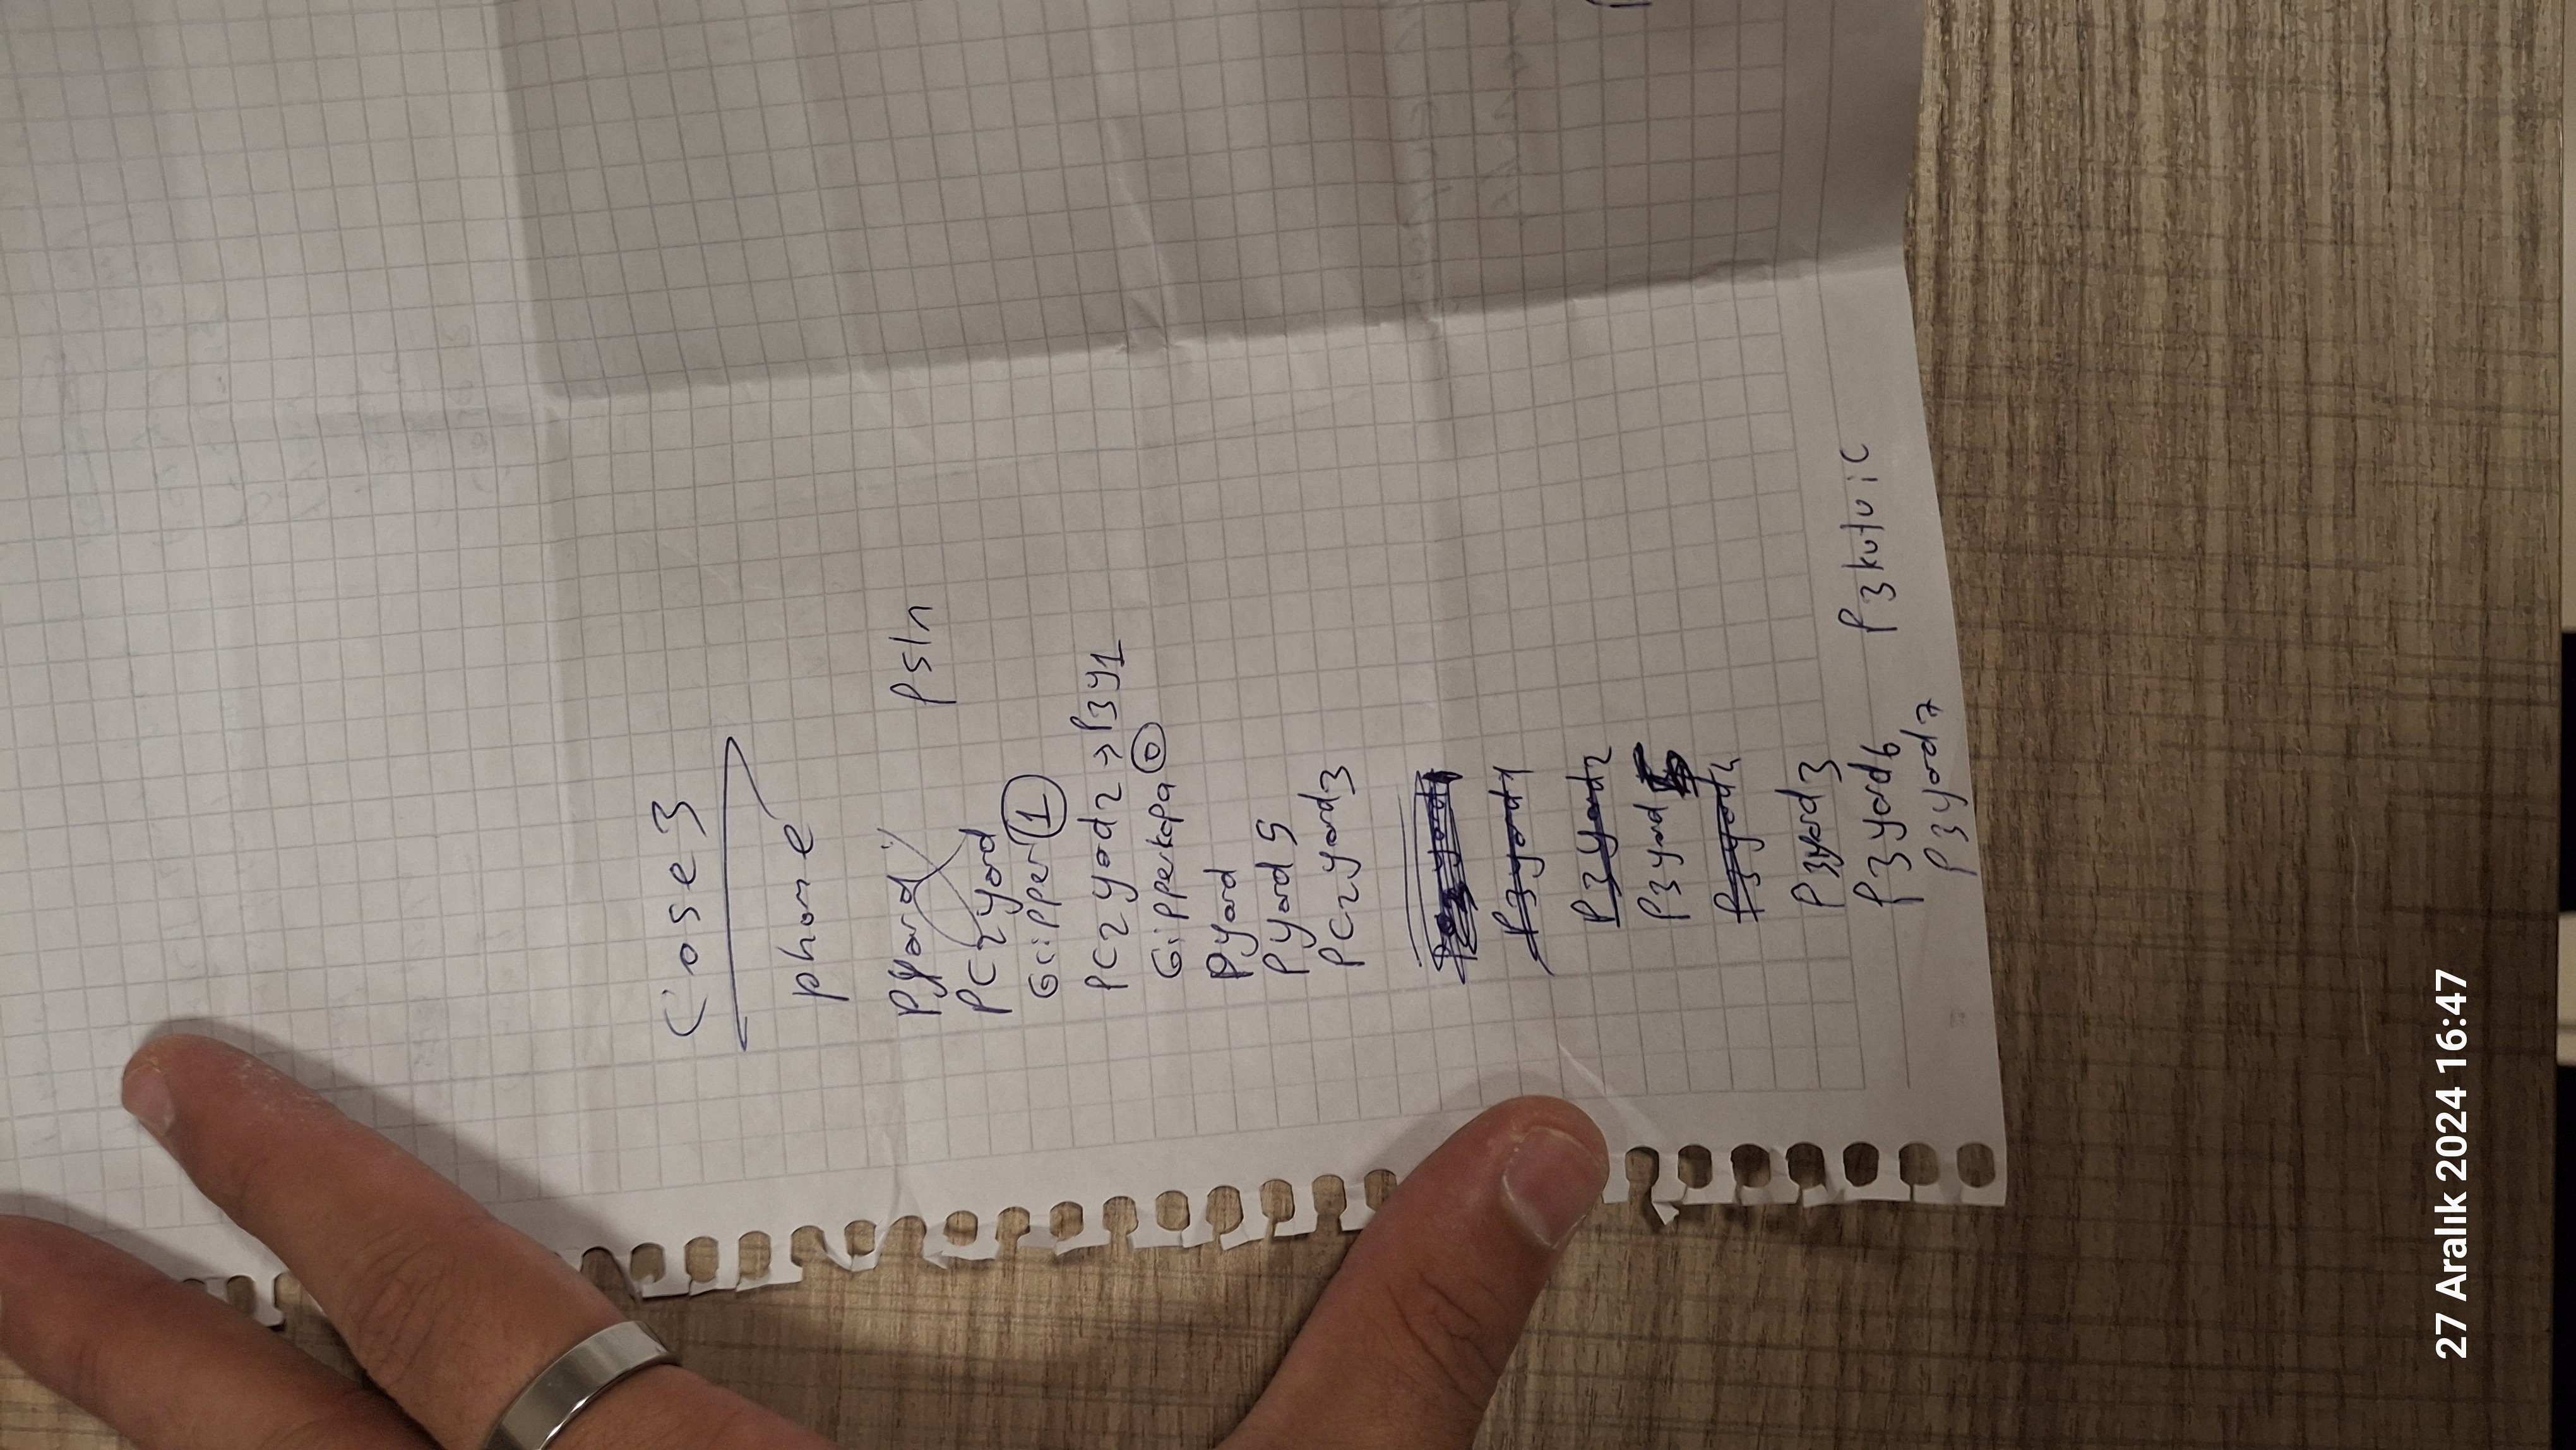 Case 3
phome
Pyard psln
PC2yard
Gripper 1
PC2 yard2 → P3y1
Gipperkapa 0
Pyard
Pyard 5
PC2 yard3
P3yard1
P3yard2
P3yard
P3yard4
P3yard3
P3yard6 P3kutuic
P3yard7
27 Aralık 2024 16:47